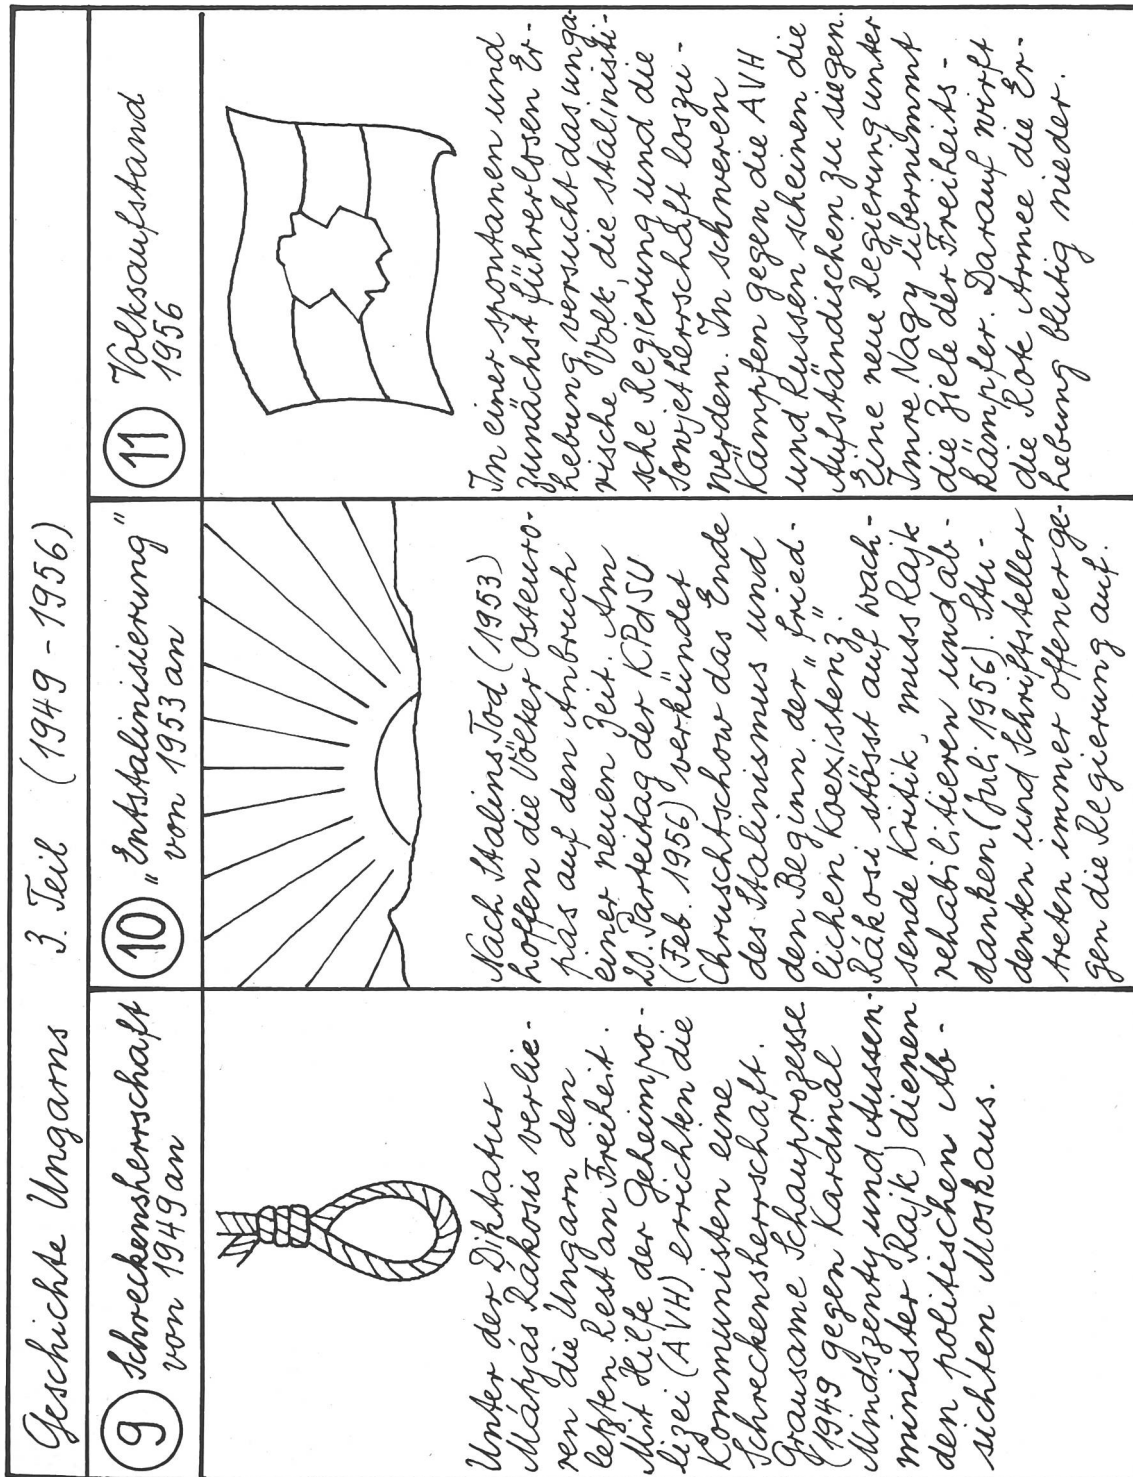 Geschichte Ungarns 3. Teil (1949 - 1956)
9 Schreckensherrschaft
von 1949 an
Unter der Diktatur
Mátyás Rákosis verlie-
ren die Ungarn den
letzten Rest an Freiheit.
Mit Hilfe der Geheimpo-
lizei (AVH) errichten die
Kommunisten eine
Schreckensherrschaft.
Grausame Schauprozesse
(1949 gegen Kardinal
Mindszenty und Aussen-
minister Rajk) dienen
den politischen Ab-
sichten Moskaus.
10 "Entstalinisierung"
von 1953 an
Nach Stalins Tod (1953)
hoffen die Völker Osteuro-
pas auf den Anbruch
einer neuen Zeit. Am
20. Parteitag der KPdSU
(Feb. 1956) verkündet
Chruschtschow das Ende
des Stalinismus und
den Beginn der "fried-
lichen Koexistenz".
Rákosi stösst auf wach-
sende Kritik, muss Rajk
rehabilitieren und ab-
danken (Juli 1956). Stu-
denten und Schriftsteller
treten immer offener ge-
gen die Regierung auf.
11 Volksaufstand
1956
In einer spontanen und
zunächst führerlosen Er-
hebung versucht das unga-
rische Volk, die stalinisti-
sche Regierung und die
Sowjetherrschaft loszu-
werden. In schweren
Kämpfen gegen die AVH
und Russen scheinen die
Aufständischen zu siegen.
Eine neue Regierung unter
Imre Nagy übernimmt
die Ziele der Freiheits-
kämpfer. Darauf wirft
die Rote Armee die Er-
hebung blutig nieder.